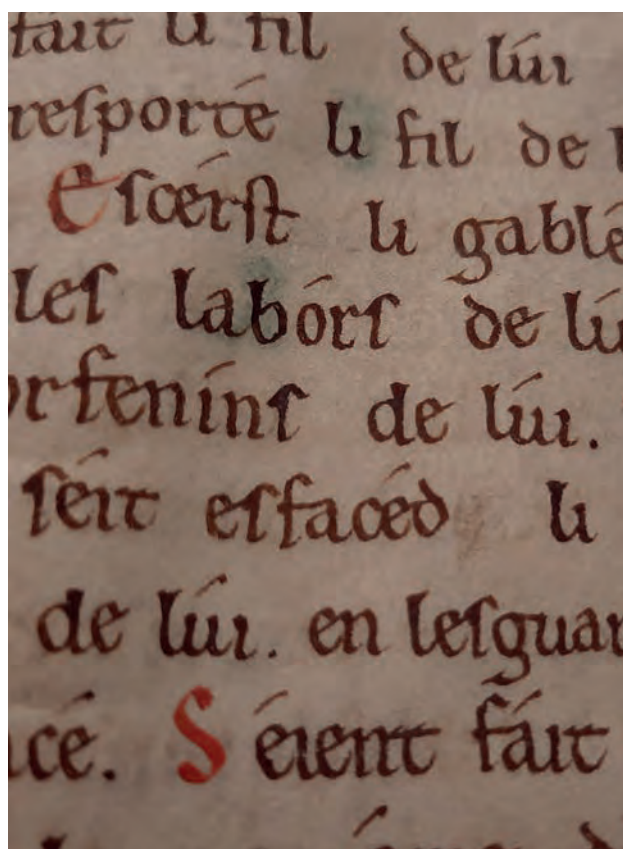 fait li fil de lúi
resporté li fil de
Escérst li gablé
les labórs de lúi
orfenins de lúi.
séit esfacéd li
de lúi. en lesguar
acé. Séient fáit